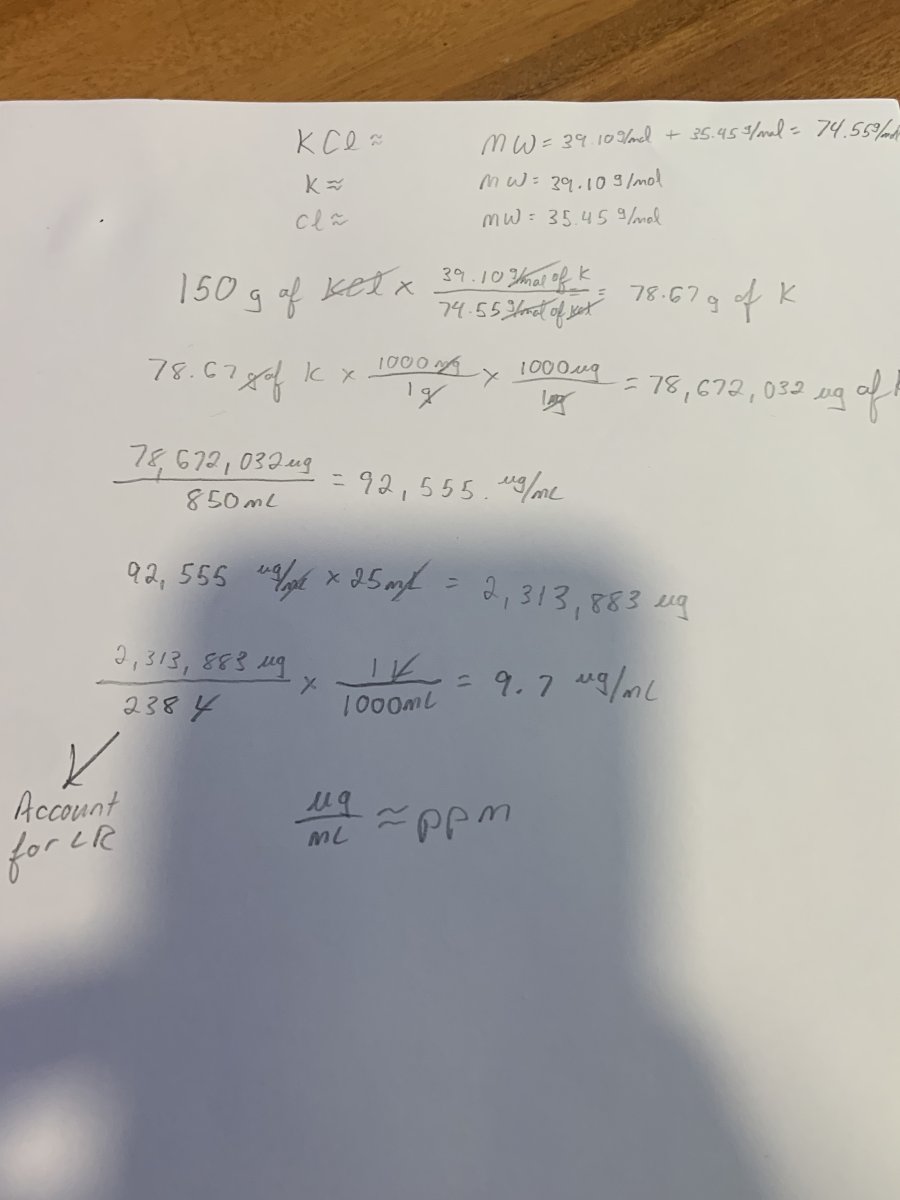 KCl ≈ MW = 39.10 g/mol + 35.45 g/mol = 74.55 g/mol
K ≈ MW = 39.10 g/mol
Cl ≈ MW = 35.45 g/mol
150 g of KCl × 39.10 g/mol of K / 74.55 g/mol of KCl = 78.67 g of K
78.67 g of K × 1000 mg / 1 g × 1000 ug / 1 mg = 78,672,032 ug of K
78,672,032 ug / 850 mL = 92,555. ug/mL
92,555 ug/mL × 25 mL = 2,313,883 ug
2,313,883 ug / 238 L × 1 L / 1000 mL = 9.7 ug/mL
Account
for LR
ug / mL ≈ ppm